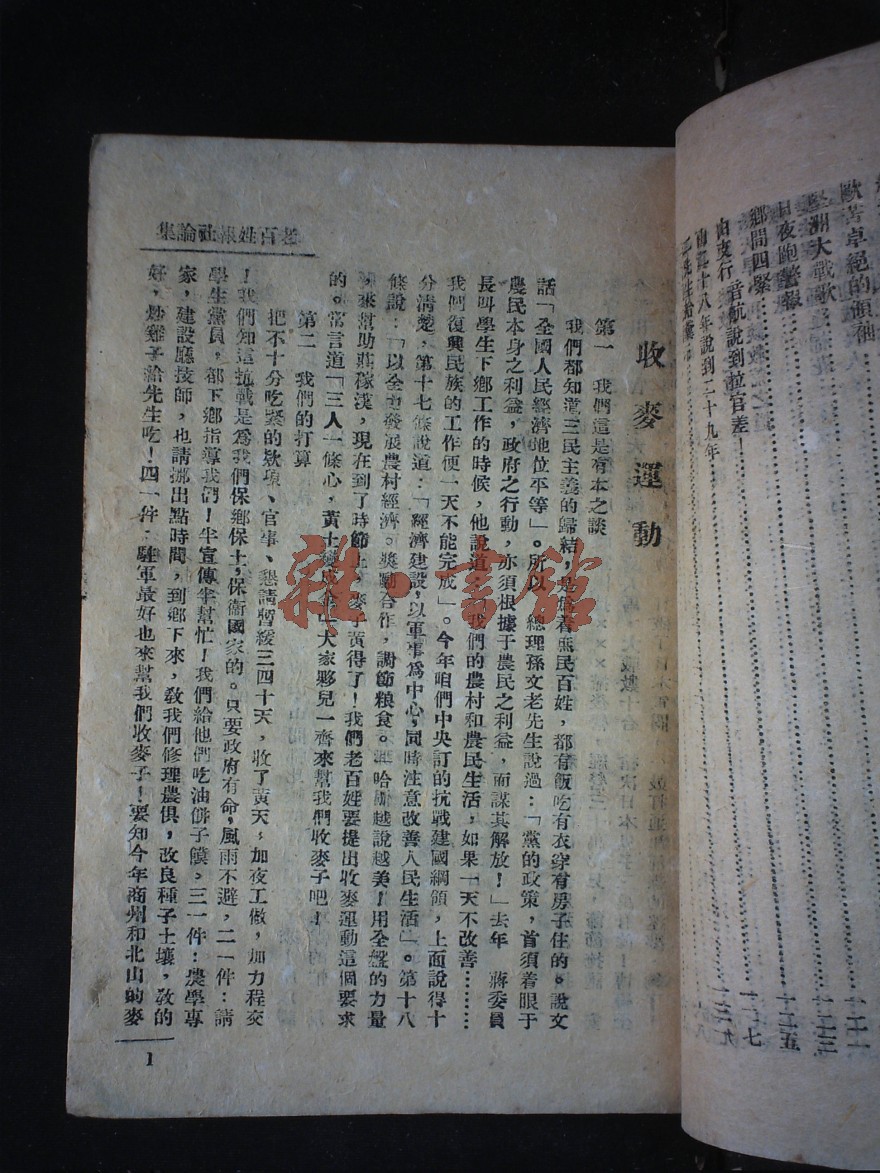 歐苦卓絕的領袖
壓洲大戰歌
日夜跑警報
鄉間四緊
由支行一督航說到拉官差
十八年說到二十九年
收麥運動
第一　我們這是有本之談
我們都知道三民主義的歸結，是為着庶民百姓，都有飯吃有衣穿有房子住的。說文
話「全國人民經濟地位平等」。所以　總理孫文老先生說過：「黨的政策，首須着眼于
農民本身之利益，政府之行動，亦須根據于農民之利益，而謀其解放！」去年　蔣委員
長叫學生下鄉工作的時候，他說道：「我們的農村和農民生活，如果一天不改善………
我們復興民族的工作便一天不能完成」。今年咱們中央訂的抗戰建國綱領，上面說得十
分清楚，第十七條說道：「經濟建設，以軍事為中心，同時注意改善人民生活」。第十八
條說：「以全力發展農村經濟。獎勵合作，調節粮食。哈越說越美！用全盤的力量
來幫助莊稼漢，現在到了時節上，麥子黃得了！我們老百姓要提出收麥運動這個要求
的。常言道「三人一條心，黃土變成金」大家夥兒一齊來幫我們收麥子吧！
第二　我們的打算
把不十分吃緊的款項、官事、懇請暫緩三四十天，收了黃天，加夜工做，加力程交
！我們知道抗戰是為我們保鄉保土，保衛國家的。只要政府有命，風雨不避，二一件：請
學生黨員，都下鄉指導我們！半宣傳半幫忙！我們給他們吃油餅子饃，三一件：農學專
家，建設廳技師，也請挪出點時間，到鄉下來，敎我們修理農俱，改良種子土壤，敎的
好，炒雞子給先生吃！四一件：駐軍最好也來幫我們收麥子！要知今年商州和北山的麥
老百姓報社論集
1
雜·書館